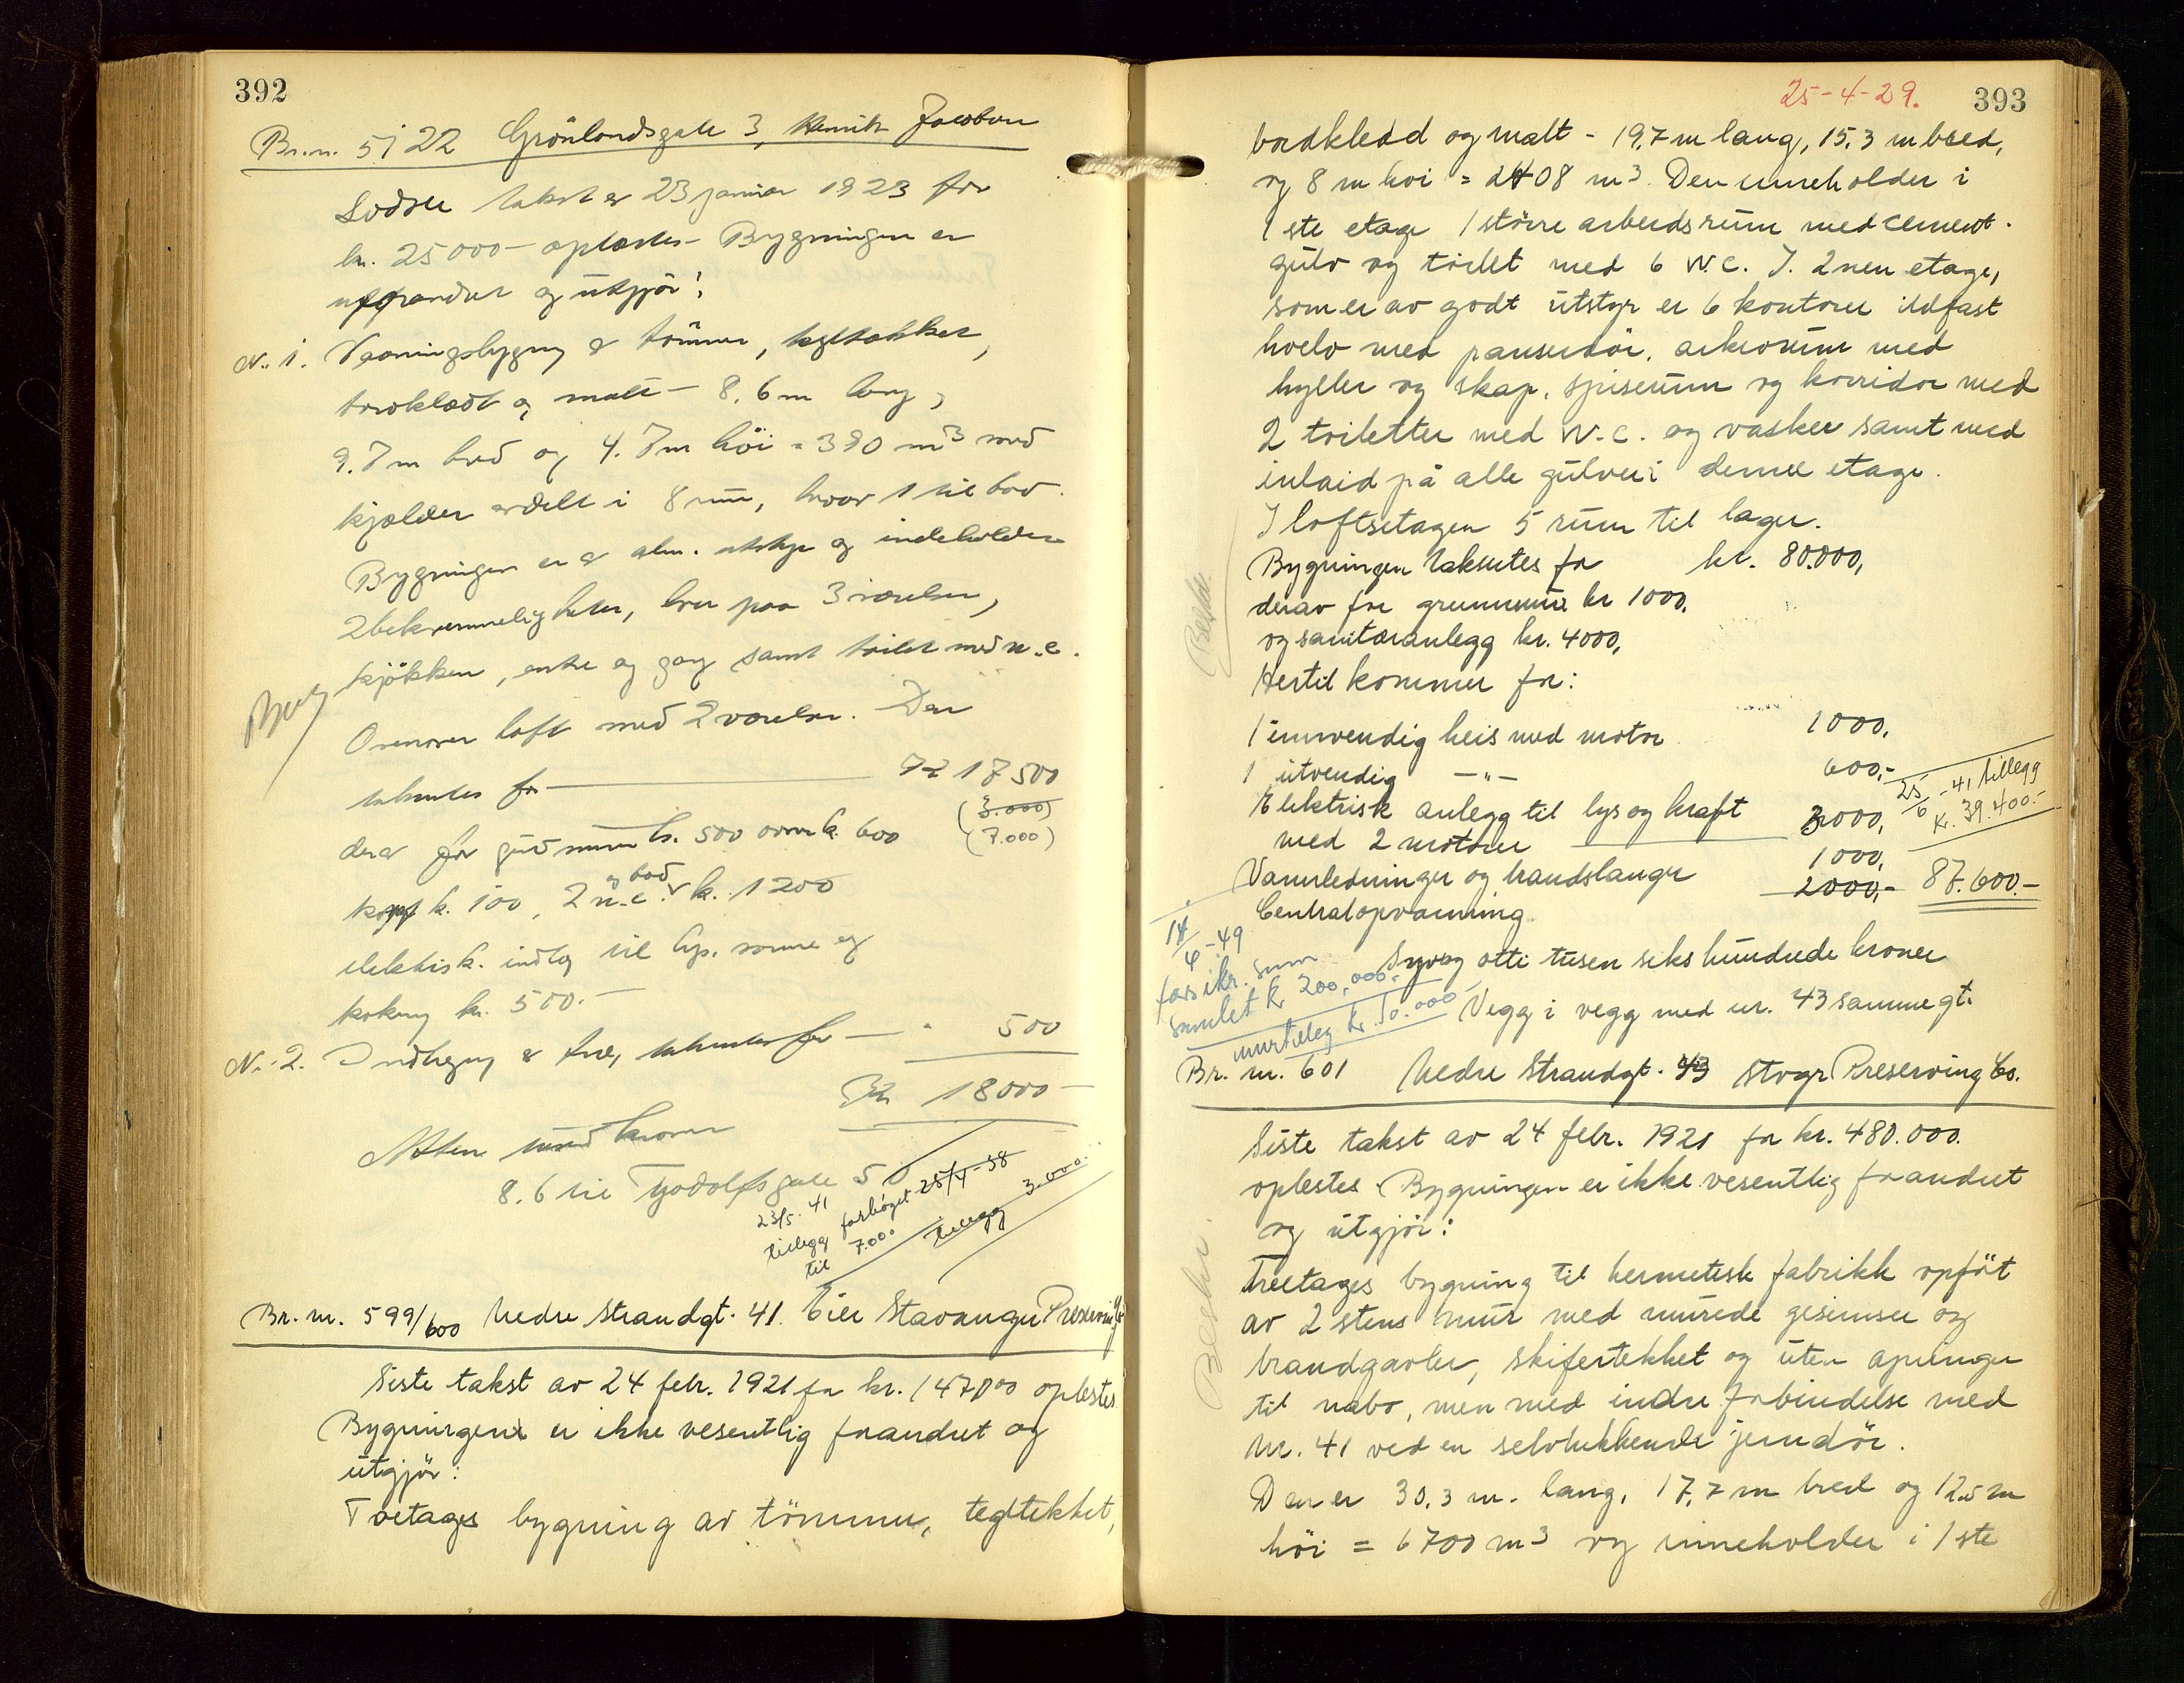 392
Br.n. 5122 Grönlandsgate 3, Henrik Jacobsen
Sidste takst av 23 januar 1923 for
kr. 25000 - oplæstes - Bygningen er
uforandret og utgjör:
N. 1. Vaaningsbygning av tömmer, tegltækket,
bordklædt og malt - 8.6 m lang,
9.7 m bred og 4.7 m höi = 390 m³ med
kjælder avdelt i 8 rum, hvorav 1 til bad.
Bygningen er av alm. utstyr og indeholder
2 bekvemmeligheter, hver paa 3 værelser,
kjökken, entre og gang samt toilet med w.c.
Ovenover loft med 2 værelser. Den
takseres for — kr 17500
(3.000)
(7.000)
derav for grundmur kr. 500 ovner k. 600
komf k. 100, 2 w.c. og bad k. 1200
elektrisk. indlæg til lys, varme og
kokning kr. 500.-
N. 2. Indhegning av træ, takseres for — " 500
Kr 18000 -
Atten tusind kroner
8.6 til Tjodolfsgate 50
23/5-41
tillegg til 7.000
forhöyet 25/4-38
tillegg 3.000.
Br. nr. 599/600 Nedre Strandgt. 41. Eier Stavanger Preserving Co
Siste takst av 24 febr. 1921 for kr. 147000 oplestes
Bygningen er ikke vesentlig forandret og
utgjör:
Toetages bygning av tömmer, tegltekket,
25-4-29. 393
bordkledd og malt - 19,7 m lang, 15,3 m bred,
og 8 m höi = 2408 m³. Den inneholder i
1ste etage 1 större arbeidsrum med cement-
gulv og toilet med 6 W.C. I 2nen etage,
som er av godt utstyr er 6 kontorer ildfast
hvelv med panserdör, arkivrum med
hyller og skap, spiserum og korridor med
2 toiletter med W.C. og vasker samt med
inlaid på alle gulver i denne etage.
I loftsetagen 5 rum til lager.
Bygningen takseres for kr. 80.000,
derav for grunnmur kr 1000,
og sanitæranlegg kr. 4000,
Hertil kommer for:
1 innvendig heis med motor 1000,
1 utvendig —"— 600,-
Elektrisk anlegg til lys og kraft
med 2 motorer 3000,
Vannledninger og brandslanger 1000,
Centralopvarming 2000,- 87.600.-
25/6-41 tillegg
kr. 39.400.-
Syvog otti tusen seks hundrede kroner
14/6-49
forsikr. sum
samlet kr 200.000.-
murtillegg kr. 50.000
Vegg i vegg med nr. 43 samme gt.
Br. nr. 601 Nedre Strandgt. 43 Stvgr. Preserving Co.
Siste takst av 24 febr. 1921 for kr. 480.000.
oplestes. Bygningen er ikke vesentlig forandret
og utgjör:
Treetages bygning til hermetisk fabrikk opfört
av 2 stens mur med murede gesimser og
brandgavler, skifertekket og uten åpninger
til nabo, men med indre forbindelse med
Nr. 41 ved en selvlukkende jerndör.
Den er 30,3 m. lang, 17,7 m bred og 12,5 m
höi = 6700 m³ og inneholder i 1ste